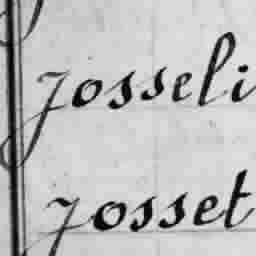 Josseli
Josset